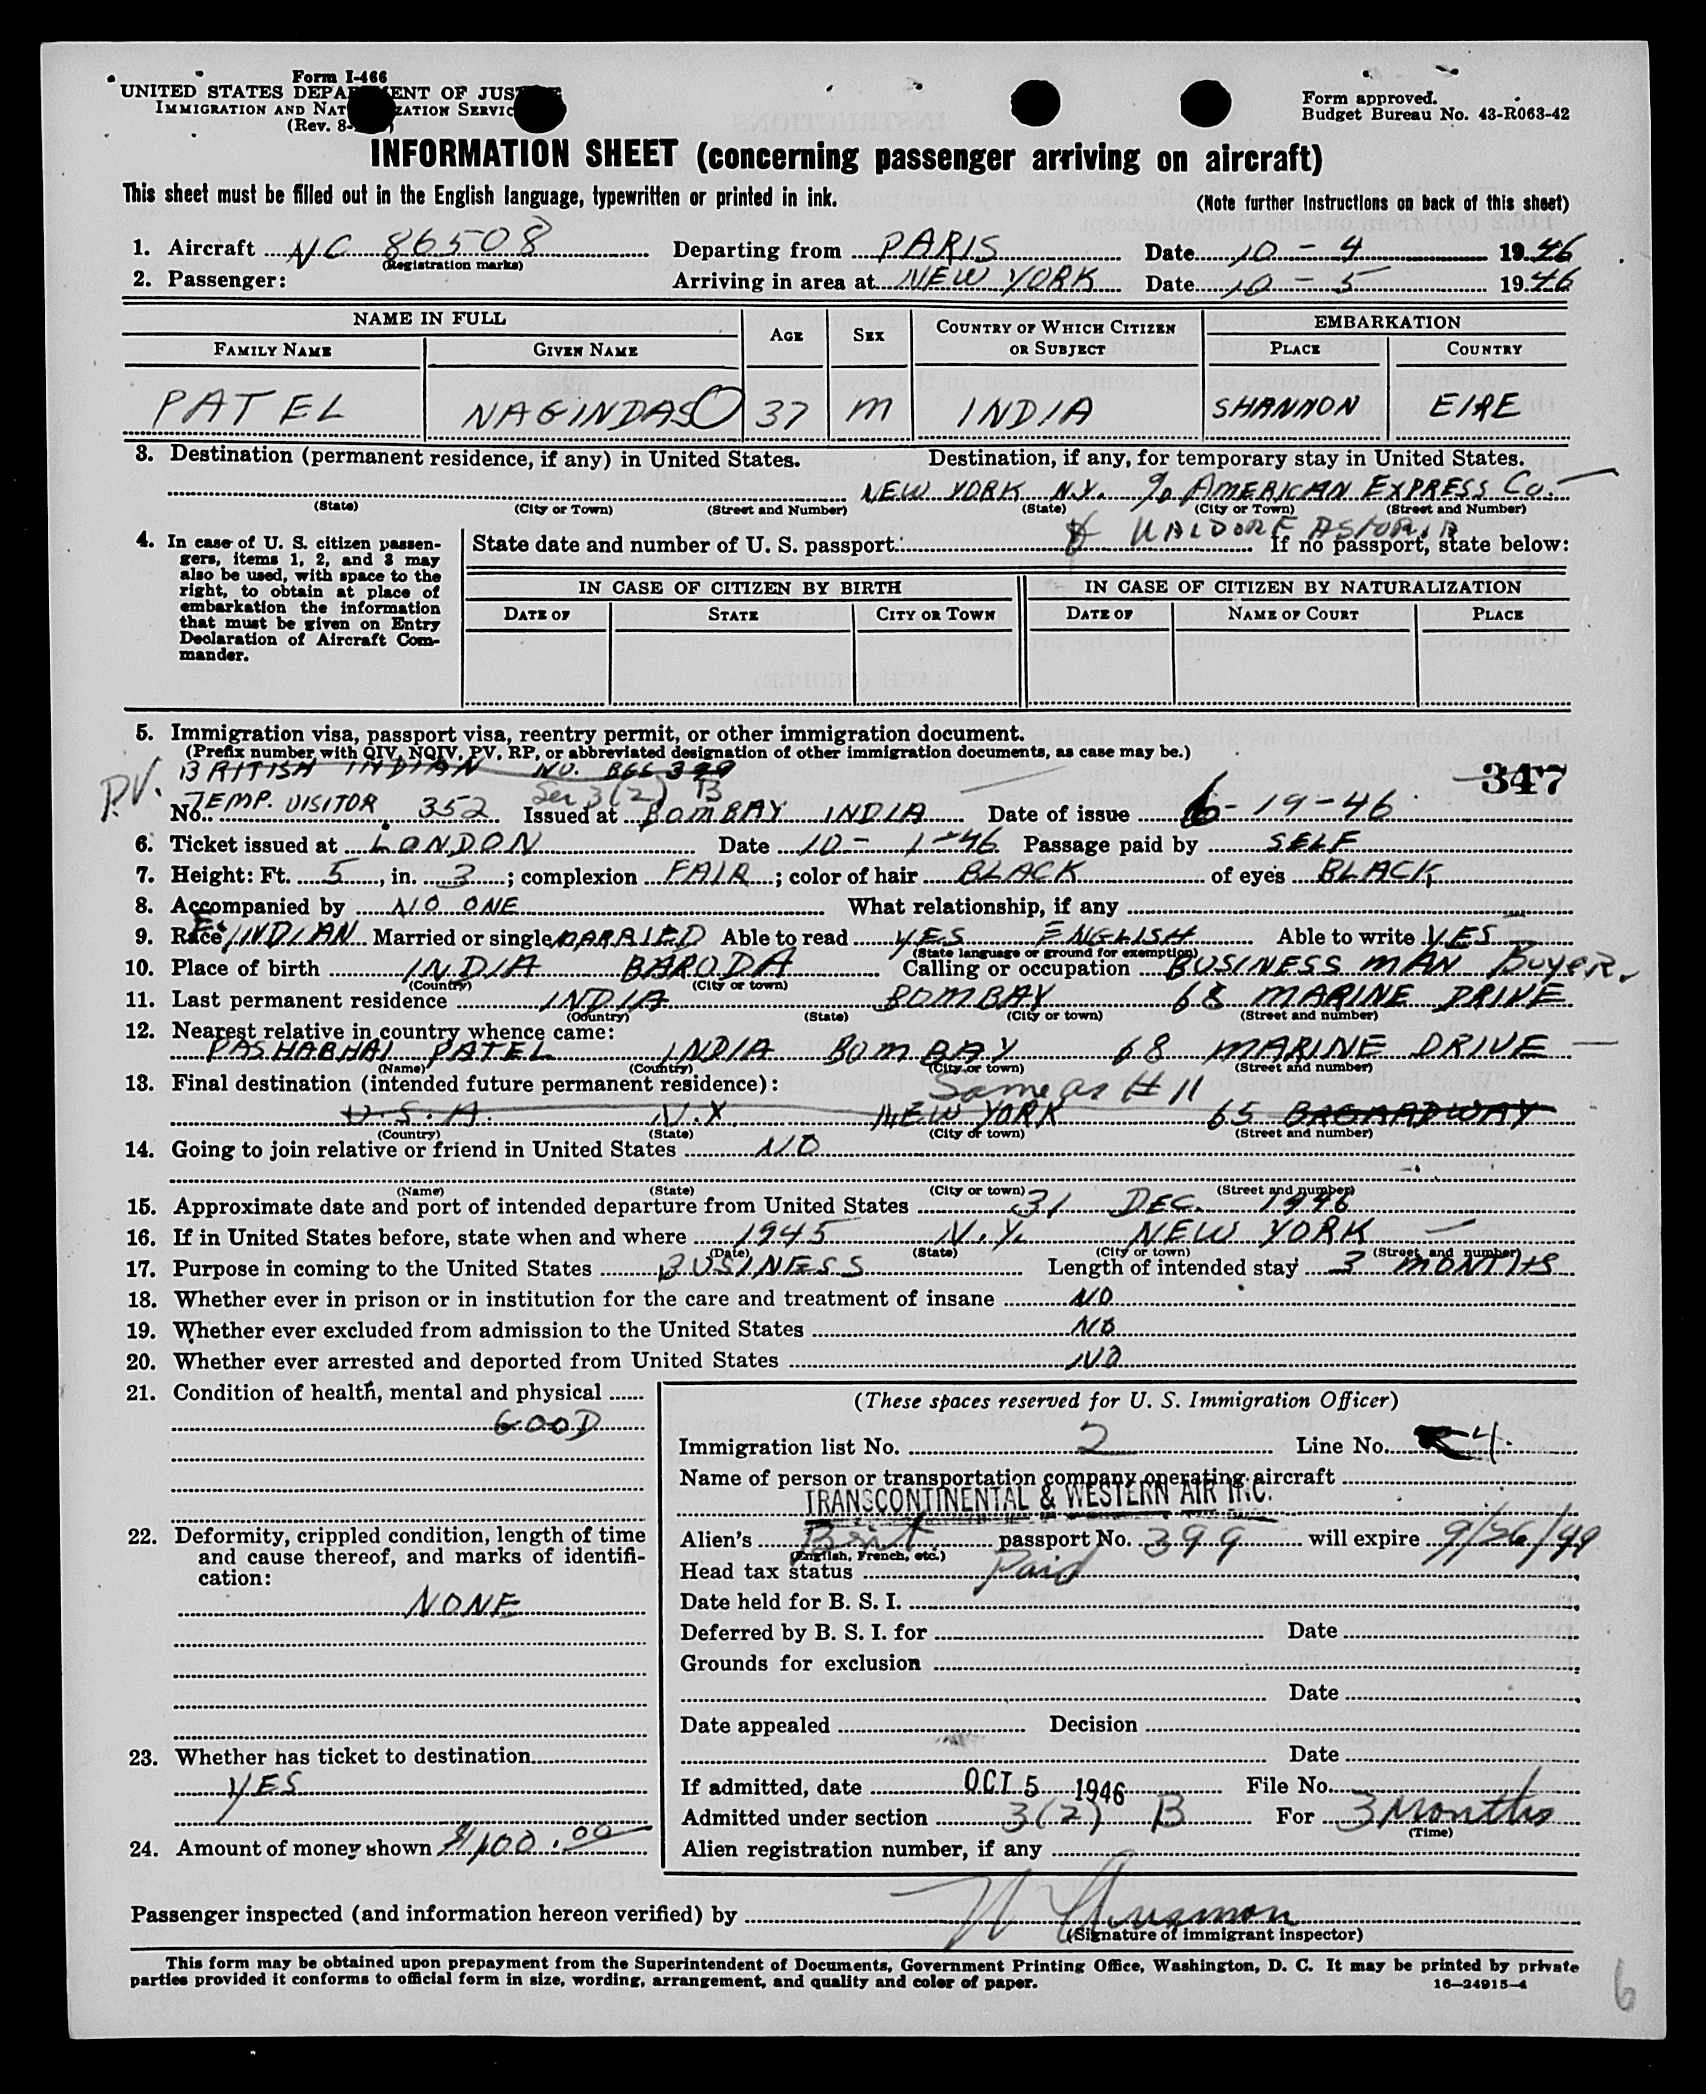 Form I-466
UNITED STATES DEPA ENT OF JUS
IMMIGRATION AND NAT ZATION SERVIC
(Rev. 8-
Form approved.
Budget Bureau No. 43-R063-42
INFORMATION SHEET (concerning passenger arriving on aircraft)
This sheet must be filled out in the English language, typewritten or printed in ink.
(Note further instructions on back of this sheet)
1. Aircraft NC 86508 Departing from PARIS Date 10-4 1946
(Registration marks)
2. Passenger: Arriving in area at NEW YORK Date 10-5 1946
NAME IN FULL AGE SEX COUNTRY OF WHICH CITIZEN OR SUBJECT EMBARKATION
FAMILY NAME GIVEN NAME PLACE COUNTRY
PATEL NAGINDAS 37 M INDIA SHANNON EIRE
3. Destination (permanent residence, if any) in United States. Destination, if any, for temporary stay in United States.
NEW YORK N.Y. % AMERICAN EXPRESS Co.
(State) (City or Town) (Street and Number) (State) (City or Town) (Street and Number)
WALDORF ASTORIA
4. In case of U. S. citizen passen-
gers, items 1, 2, and 3 may
also be used, with space to the
right, to obtain at place of
embarkation the information
that must be given on Entry
Declaration of Aircraft Com-
mander.
State date and number of U. S. passport. If no passport, state below:
IN CASE OF CITIZEN BY BIRTH IN CASE OF CITIZEN BY NATURALIZATION
DATE OF STATE CITY OR TOWN DATE OF NAME OF COURT PLACE
5. Immigration visa, passport visa, reentry permit, or other immigration document.
(Prefix number with QIV, NQIV, PV, RP, or abbreviated designation of other immigration documents, as case may be.)
BRITISH INDIAN NO. 399
347
P.V. Sec 3(2) B
No. TEMP. VISITOR 352 Issued at BOMBAY INDIA Date of issue 6-19-46
6. Ticket issued at LONDON Date 10-1-46 Passage paid by SELF
7. Height: Ft. 5, in. 3; complexion FAIR; color of hair BLACK of eyes BLACK
8. Accompanied by NO ONE What relationship, if any
9. Race E. INDIAN Married or single MARRIED Able to read YES ENGLISH Able to write YES
(State language or ground for exemption)
10. Place of birth INDIA BARODA Calling or occupation BUSINESS MAN Buyer.
(Country) (City or town)
11. Last permanent residence INDIA BOMBAY 68 MARINE DRIVE
(Country) (State) (City or town) (Street and number)
12. Nearest relative in country whence came:
PASHABHAI PATEL INDIA BOMBAY 68 MARINE DRIVE
(Name) (Country) (City or town) (Street and number)
13. Final destination (intended future permanent residence):
Same as # 11
U.S.A. N.Y. NEW YORK 65 BROADWAY
(Country) (State) (City or town) (Street and number)
14. Going to join relative or friend in United States NO
(Name) (State) (City or town) (Street and number)
15. Approximate date and port of intended departure from United States 31 DEC. 1946
16. If in United States before, state when and where 1945 N.Y. NEW YORK
(Date) (State) (City or town) (Street and number)
17. Purpose in coming to the United States BUSINESS Length of intended stay 3 MONTHS
18. Whether ever in prison or in institution for the care and treatment of insane NO
19. Whether ever excluded from admission to the United States NO
20. Whether ever arrested and deported from United States NO
21. Condition of health, mental and physical
GOOD
22. Deformity, crippled condition, length of time
and cause thereof, and marks of identifi-
cation:
NONE
23. Whether has ticket to destination
YES
24. Amount of money shown $1,100.00
(These spaces reserved for U. S. Immigration Officer)
Immigration list No. 2 Line No. 4
Name of person or transportation company operating aircraft
TRANSCONTINENTAL & WESTERN AIR INC.
Alien's Brit passport No. 399 will expire 9/26/49
(English, French, etc.)
Head tax status Paid
Date held for B. S. I.
Deferred by B. S. I. for Date
Grounds for exclusion
Date
Date appealed Decision
Date
If admitted, date OCT 5 1946 File No.
Admitted under section 3(2) B For 3 Months
(Time)
Alien registration number, if any
Passenger inspected (and information hereon verified) by
(Signature of immigrant inspector)
This form may be obtained upon prepayment from the Superintendent of Documents, Government Printing Office, Washington, D. C. It may be printed by private
parties provided it conforms to official form in size, wording, arrangement, and quality and color of paper.
16—24915-4
6